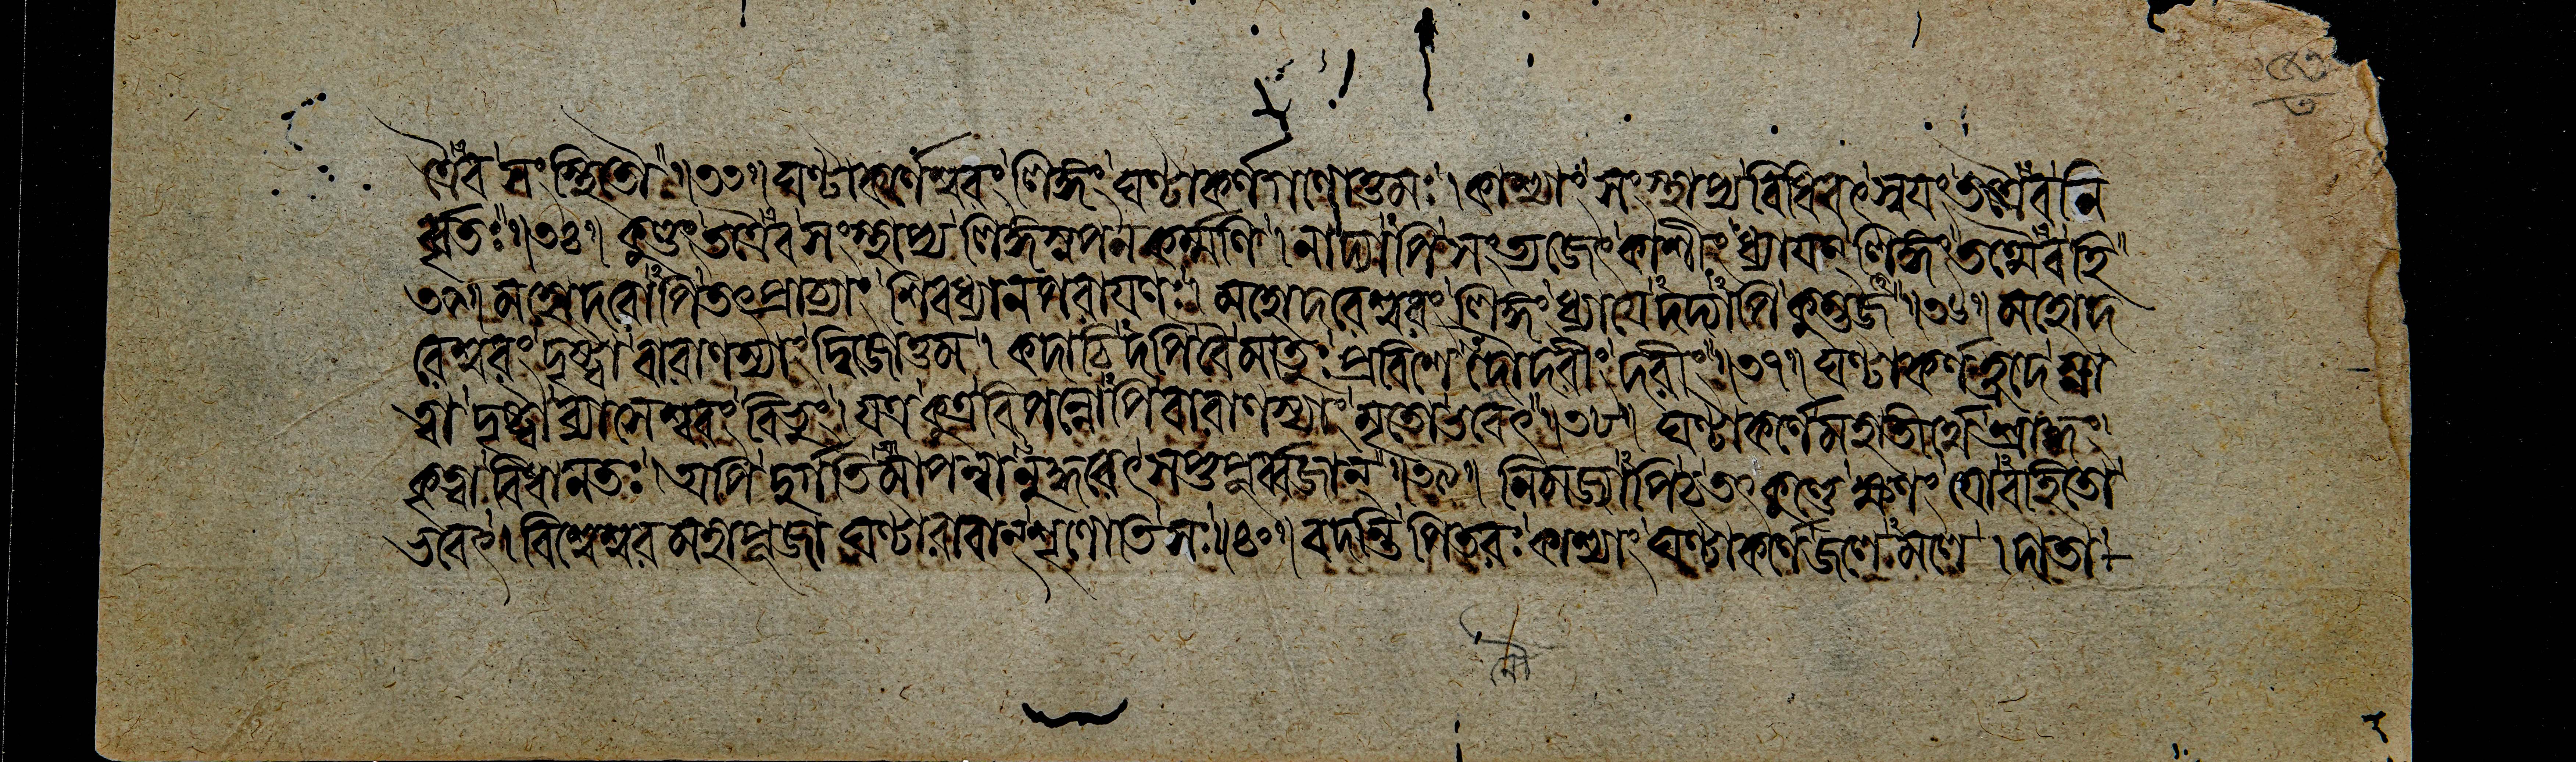 ত্রৈব সংস্থিতৌ॥৩৩॥ ঘণ্টাকর্ণেশ্বরং লিঙ্গং ঘণ্টাকর্ণগণোত্তমঃ। কাশ্যাং সংস্থাপ্য বিধিবৎ স্বয়ং তত্রৈব নি
র্বৃতঃ॥৩৪॥ কুণ্ডং তত্রৈব সংস্থাপ্য লিঙ্গস্নপনকর্ম্মণি। নাদ্যাপি সংত্যজেৎ কাশীং ধ্যায়ন্ লিঙ্গং তথৈব হি
৩৫॥ মহোদরোপি তৎপ্রাচ্যাং শিবধ্যানপরায়ণঃ। মহোদরেশ্বরং লিঙ্গং ধ্যায়েদদ্যাপি কুম্ভজ॥৩৬॥ মহোদ
রেশ্বরং দৃষ্ট্বা বারাণস্যাং দ্বিজোত্তম। কদাচিদপি বৈ মাতুঃ প্রবিশেন্নৌদরীং দরীং॥৩৭॥ ঘণ্টাকর্ণহ্রদে স্না
ত্বা দৃষ্ট্বা ব্যাসেশ্বরং বিভুং। যত্র কুত্র বিপন্নোপি বারাণস্যাং মৃতো ভবেৎ॥৩৮॥ ঘণ্টাকর্ণে মহাতীর্থে শ্রাদ্ধং
কৃত্বা বিধানতঃ। অপি দুর্গতিমাপন্নানুদ্ধরেৎ সপ্তপূর্ব্বজান্॥৩৯॥ নিমজ্যাপি চ তৎকুণ্ডে ক্ষণং যোবহিতো
ভবেৎ। বিশ্বেশ্বরমহাপূজা ঘণ্টারাবান্ শৃণোতি সঃ॥৪০॥ বদন্তি পিতরঃ কাশ্যাং ঘণ্টাকর্ণে জলেমলে। দাতা